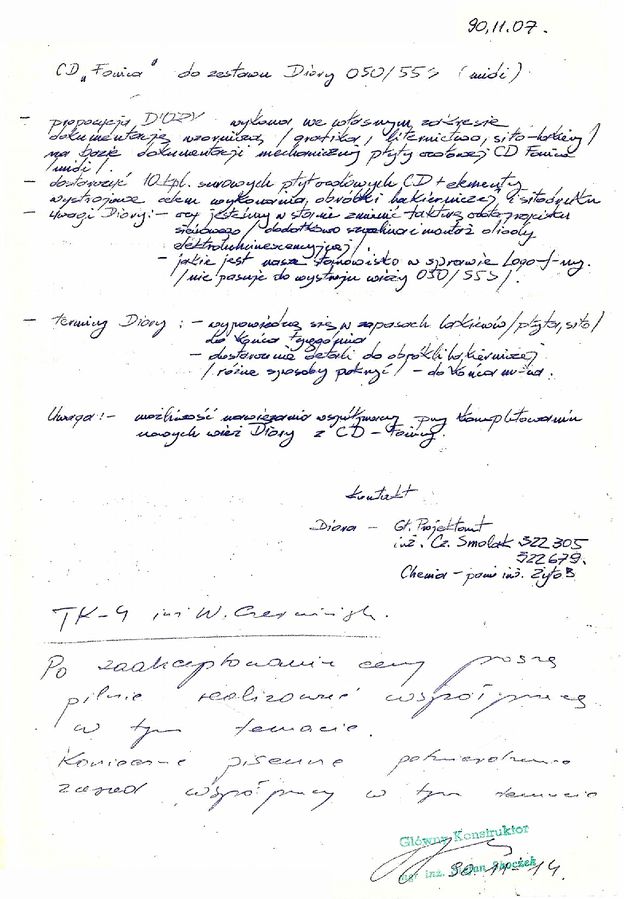 90.11.07.
CD "Fonica" do zestawu Diory 050/55> (midi)
- propozycja DIORY wykona we własnym zakresie
dokumentację wzorniczą /grafika, liternictwo, sito-lakiery/
na bazie dokumentacji mechanicznej płyty czołowej CD Fonica
/midi/.
- dostarczyć 10 kpl. surowych płyt czołowych CD + elementy
wystrojowe celem wykonania obróbki lakierniczej i sitodruku
- Uwagi Diory: - czy jesteśmy w stanie zmienić
sieciowego / dodatkowo i montaż diody
elektroluminescencyjnej/.
- jakie jest nasze stanowisko w sprawie Logo f-my.
/nie pasuje do wystroju wieży 050/55>/.
- terminy Diory: - wypowiedzą się w zapasach lakierów /płyta, sito/
do końca tygodnia
- dostarczenie detali do obróbki lakierniczej
/różne sposoby pokryć/ - do końca m-ca.
Uwaga: - możliwość nawiązania współpracy przy kompletowaniu
nowych wież Diory z CD - Foniny.
Kontakt
Diora - Gł. Projektant
inż. Cz. Smolak 322 305
322 679.
Chemia - pani inż.
TK-4 inż W.
Po zaakceptowaniu ceny proszę
pilnie realizować współpracę
w tym temacie.
Konieczne pisemne potwierdzenie
zasad współpracy w tym temacie
Główny Konstruktor
mgr inż. Stefan
90-11-14.